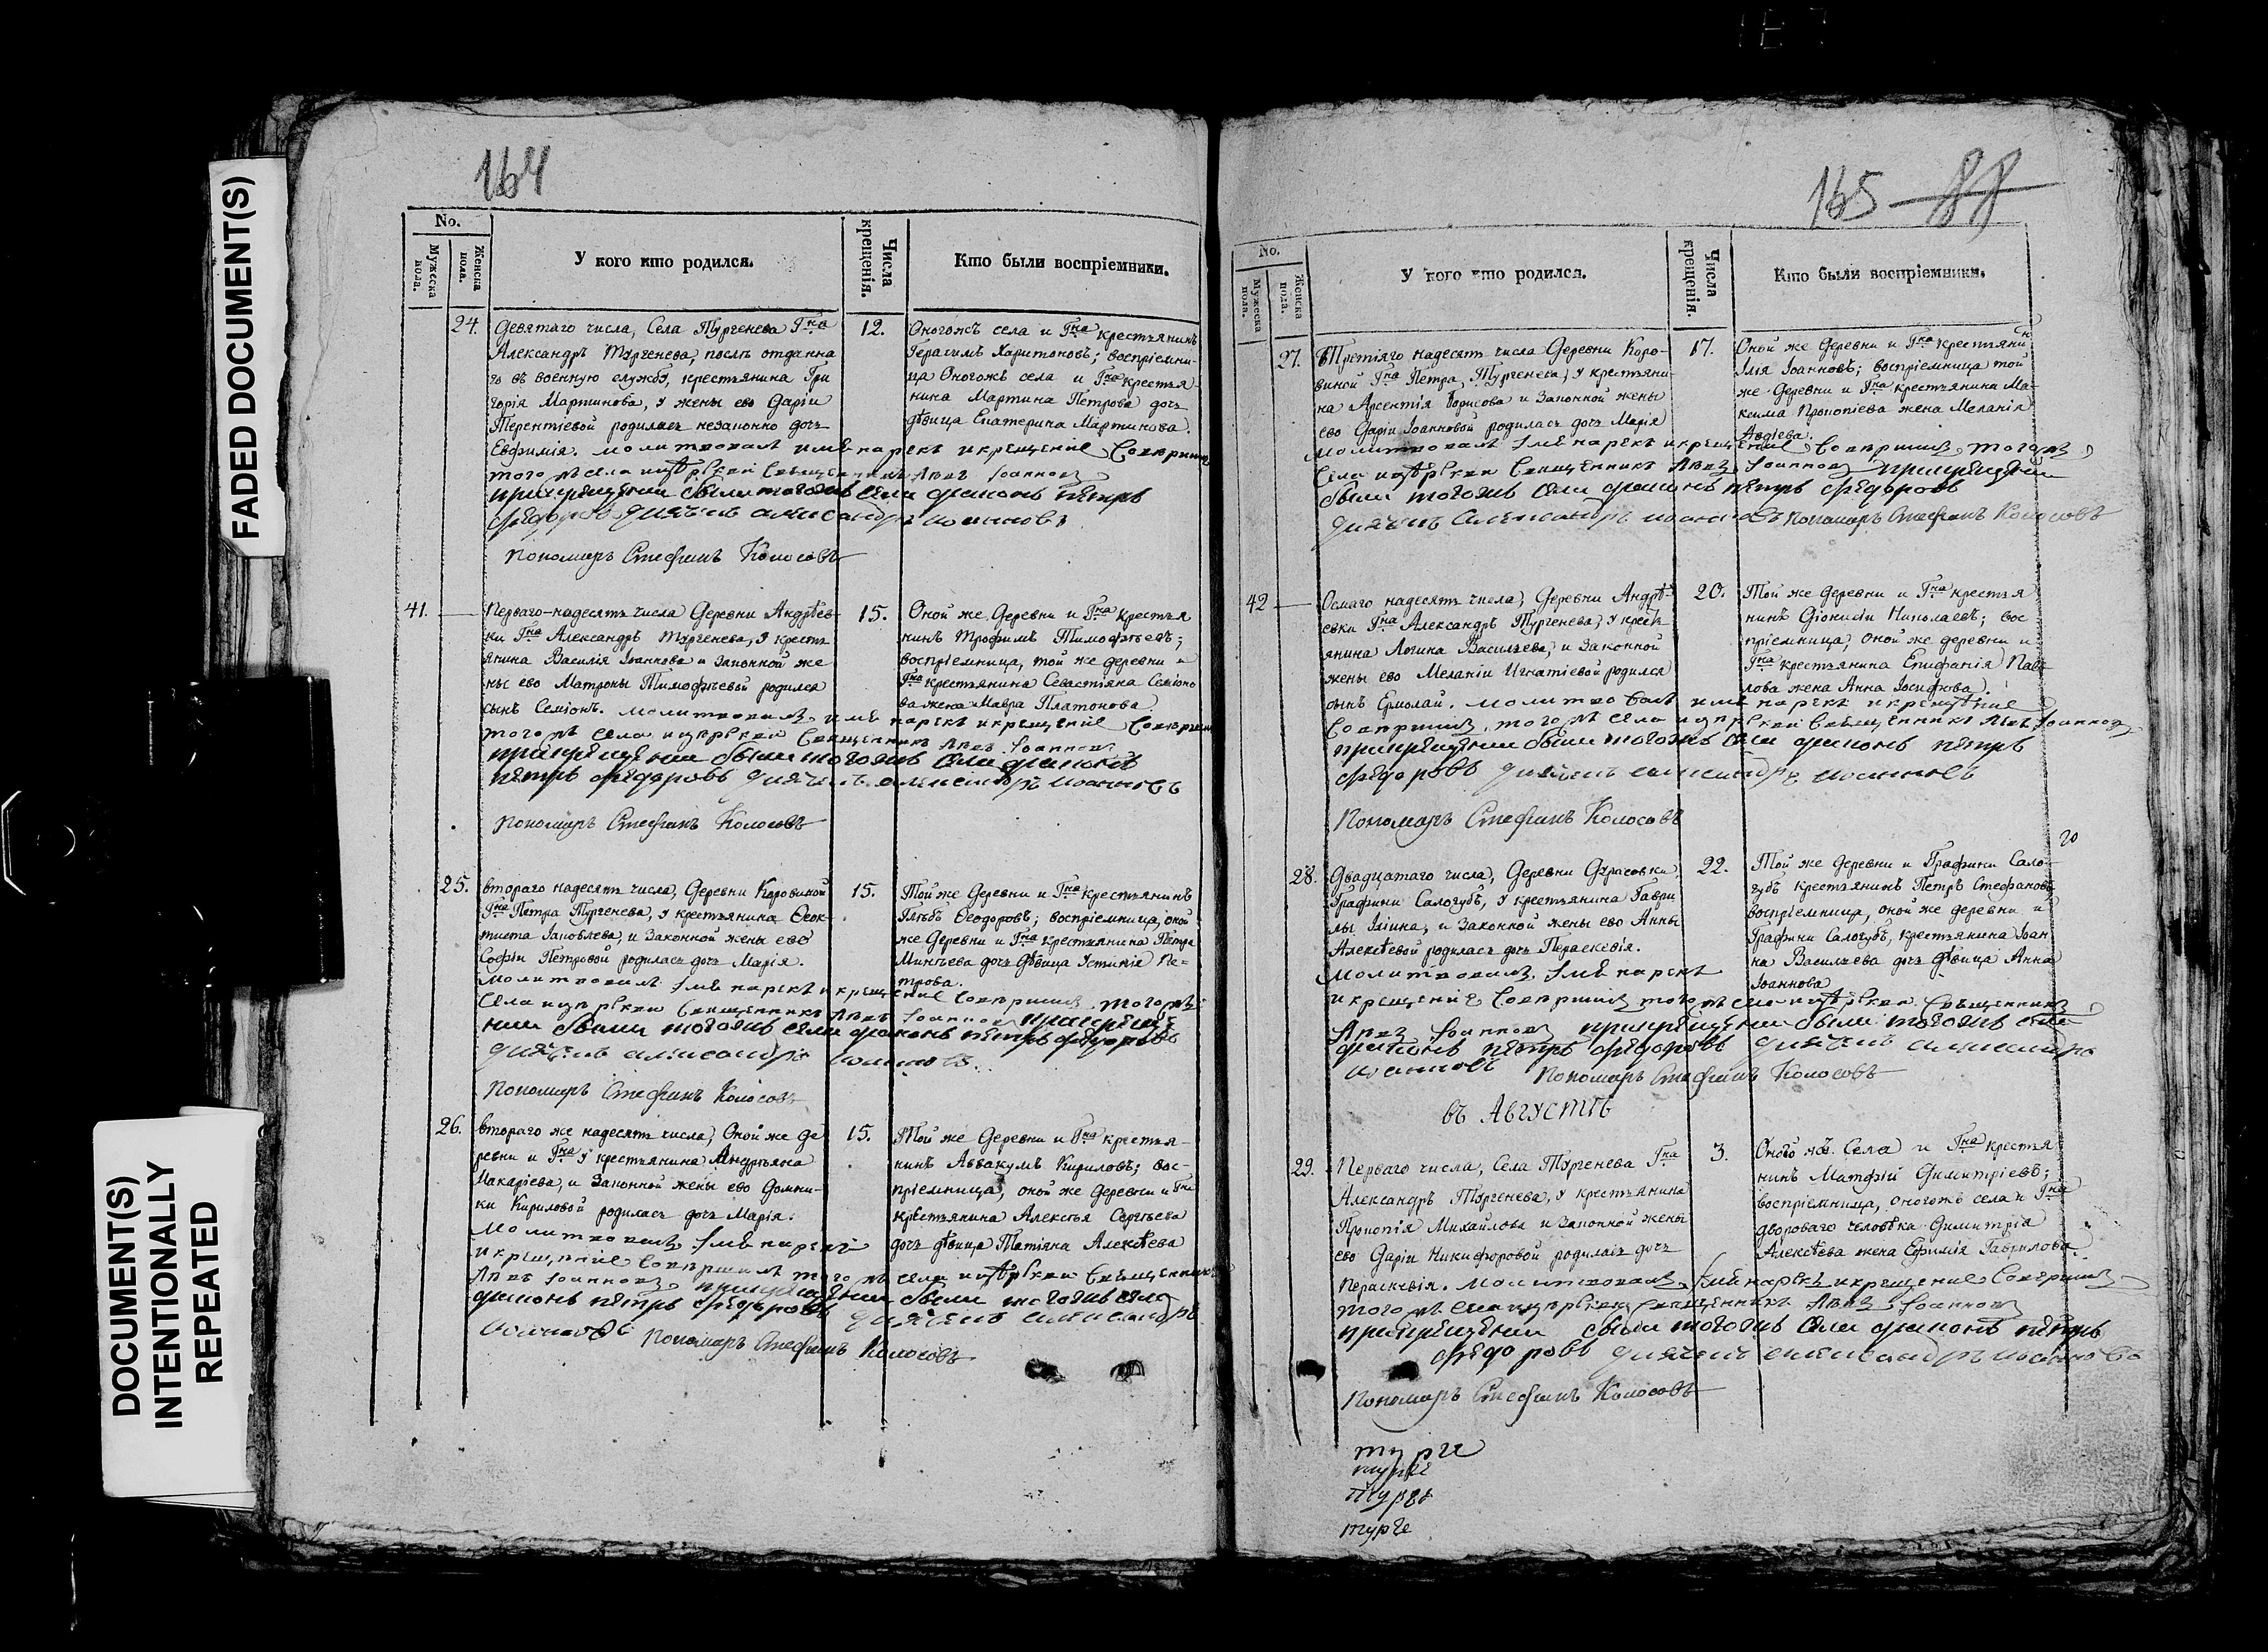 FADED DOCUMENT(S)
DOCUMENT(S)
INTENTIONALLY
REPEATED
164
No.
Мужеска пола.
Женска пола.
У кого кто родился.
Числа крещенія.
Кто были воспріемники.
24.
Девятаго числа, Села Тургенева Гна
Александръ Тургенева, послѣ отданна
го въ военную службу, крестьянина Гри
горія Мартинова, у жены ево Даріи
Терентіевой родилась незаконно дочь
Евфимія. молитвовалъ имѣ нарекъ и крещеніе Соверши
того жъ села и церкви Священникъ Левъ Іоанновъ
прикрещении были тогожъ села диаконъ петръ
федоровъ дияченъ александръ иоанновъ
пономарь Стефанъ Колосовъ
12.
Оногожъ села и Гна крестьянинъ
Герасимъ Харитоновъ; воспріемни-
ца Оногожъ села и Гна крестья
нина Мартина Петрова дочь
дѣвица Екатерина Мартинова.
41.
Перваго-надесять числа Деревни Андрѣев-
ки Гна Александръ Тургенева, у кресть
янина Василія Іоаннова и законной же
ны ево Матроны Тимофѣевой родился
сынъ Семіонъ. молитвовалъ имѣ нарекъ и крещеніе Соверши
того жъ села и церкви Священникъ Левъ Іоанновъ
прикрещении были тогожъ села диаконъ
петръ федоровъ дияченъ александръ иоанновъ
пономарь Стефанъ Колосовъ
15.
Оной же Деревни и Гна Крестья
нинъ Трофимъ Тимофѣевъ;
воспріемница, той же деревни и
Гна крестьянина Севастіяна Семіоно
ва жена Мавра Платонова
25.
втораго надесять числа, Деревни Коровиной
Гна Петра Тургенева, у крестьянина Ѳеок-
тиста Іаковлева, и Законной жены ево
Софіи Петровой родилась дочь Марія.
молитвовалъ имѣ нарекъ и крещеніе Совершилъ тогожъ
Села и церкви Священникъ Левъ Іоанновъ прикреще
нии были тогожъ села диаконъ петръ федоровъ
дияченъ александръ иоанновъ
пономарь Стефанъ Колосовъ
15.
Той же Деревни и Гна крестьянинъ
Глѣбъ Ѳеодоровъ; воспріемница, оной
же Деревни и Гна крестьянина Петра
Минѣева дочь дѣвица Устинія Пе-
трова.
26.
втораго же надесять числа, Оной же де
ревни и Гна у крестьянина Андреяна
Макаріева, и Законной жены ево Домни-
ки Кириловой родилась дочь Марія.
молитвовалъ имѣ нарекъ
и крещеніе Совершилъ того жъ села и церкви Священникъ
Левъ Іоанновъ прикрещении были тогожъ села
диаконъ петръ федоровъ дияченъ александръ
иоанновъ пономарь Стефанъ Колосовъ
15.
Той же Деревни и Гна крестья-
нинъ Аввакумъ Кириловъ; вос-
пріемница, оной же деревни и Гна
крестьянина Алексѣя Сергѣева
дочь дѣвица Татіяна Алексѣева
165 88
No.
Мужеска пола.
Женска пола.
У кого кто родился.
Числа крещенія.
Кто были воспріемники.
27.
Третіяго надесять числа Деревни Коро-
виной Гна Петра Тургенева, у крестьяни-
на Арсентія Борисова и Законной жены
ево Даріи Іоанновой родилась дочь Марія
молитвовалъ имѣ нарекъ и крещеніе Совершилъ тогожъ
Села и церкви Священникъ Левъ Іоанновъ прикрещении
были тогожъ села диаконъ петръ федоровъ
дияченъ александръ иоанновъ пономарь Стефанъ Колосовъ
17.
Оной же деревни и Гна крестьянин
Илія Іоанновъ; воспріемница той
же деревни и Гна крестьянина Ма-
ксима Прокопіева жена Меланія
Авдіева.
42
Осмаго надесять числа, Деревни Андрѣ-
евки Гна Александръ Тургенева, у крест
янина Логина Васильева, и Законной
жены ево Меланіи Игнатіевой родился
сынъ Ермолай. молитвовалъ имѣ нарекъ и крещеніе
Совершилъ того жъ села и церкви Священникъ Левъ Іоанновъ
прикрещении были тогожъ села диаконъ петръ
федоровъ дияченъ александръ иоанновъ
пономарь Стефанъ Колосовъ
20.
Той же деревни и Гна крестья
нинъ Діонисій Николаевъ; вос
пріемница, оной же деревни и
Гна крестьянина Епифанія Пав
лова жена Анна Іосифова.
28.
Двадцатаго числа, Деревни Фурасовки
Графини Салогубъ, у крестьянина Гаври
лы Іліина, и Законной жены ево Анны
Алексѣевой родилась дочь Параскевія.
молитвовалъ имѣ нарекъ
и крещеніе Совершилъ того жъ села и церкви Священникъ
Левъ Іоанновъ прикрещении были тогожъ села
диаконъ петръ федоровъ дияченъ александръ
иоанновъ пономарь Стефанъ Колосовъ
22.
Той же деревни и Графини Сало-
губъ крестьянинъ Петръ Стефановъ,
воспріемница, оной же деревни и
Графини Салогубъ, крестьянина Іоан
на Васильева дочь дѣвица Анна
Іоаннова
въ АВГУСТѢ
29.
Перваго числа, Села Тургенева Гна
Александръ Тургенева, у крестьянина
Прокопія Михайлова и Законной жены
ево Даріи Никифоровой родилась дочь
Параскевія. молитвовалъ имѣ нарекъ и крещеніе Совершилъ
того жъ села и церкви Священникъ Левъ Іоанновъ
прикрещении были тогожъ села диаконъ петръ
федоровъ дияченъ александръ иоанновъ
пономарь Стефанъ Колосовъ
3.
Оного жъ Села и Гна крестья
нинъ Матфій Димитріевъ;
воспріемница, оногожъ села и Гна
двороваго человѣка Димитрія
Алексѣева жена Ефимія Гаврилова.
турге
турге
турге
турге